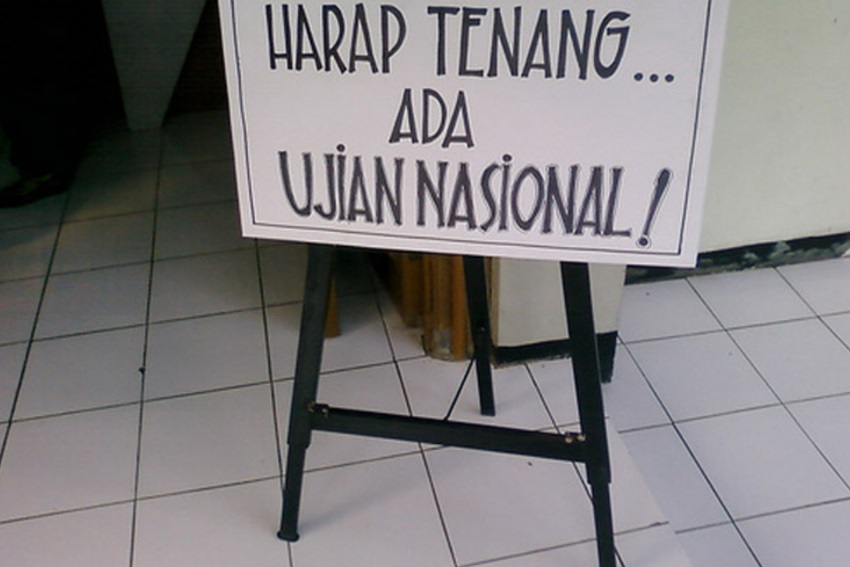 HARAP TENANG...
ADA
UJiAN NASiONAL!